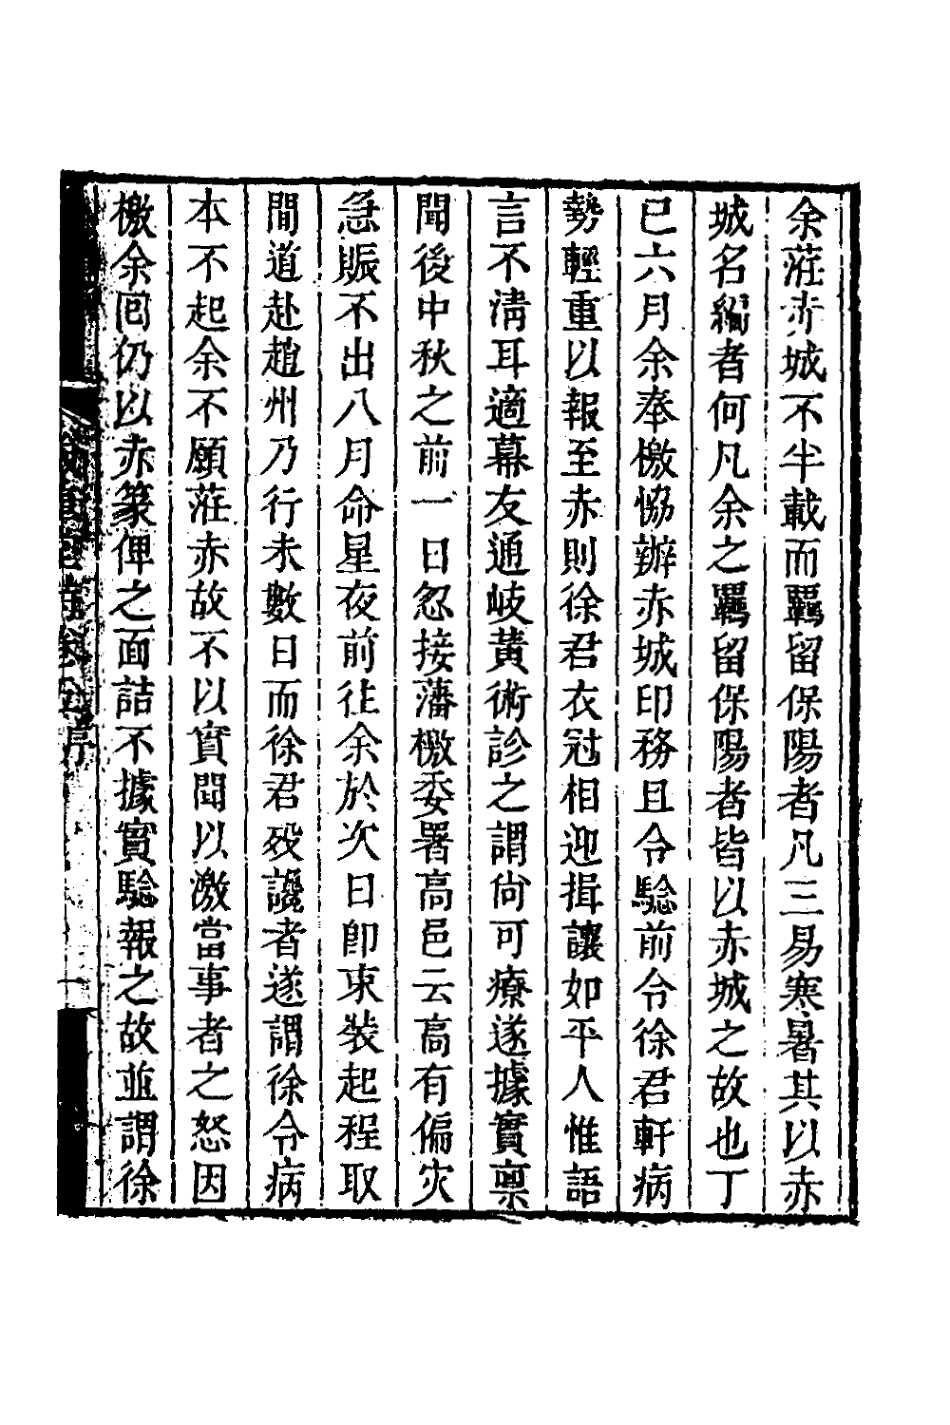 余莊赤城不半載而羈留保陽者凡三易寒暑其以赤
城名編者何凡余之羈留保陽者皆以赤城之故也丁
巳六月余奉檄恊辦赤城印務且令驗前令徐君軒病
勢輕重以報至赤則徐君衣冠相迎揖讓如平人惟語
言不清耳適幕友通岐黃術診之謂尙可療遂據實禀
聞後中秋之前一日忽接藩檄委署高邑云高有偏灾
急賑不出八月命星夜前徃余於次日卽束裝起程取
間道赴趙州乃行未數日而徐君歿讒者遂謂徐令病
本不起余不願莊赤故不以實聞以激當事者之怒因
檄余回仍以赤篆俾之面詰不據實驗報之故並謂徐